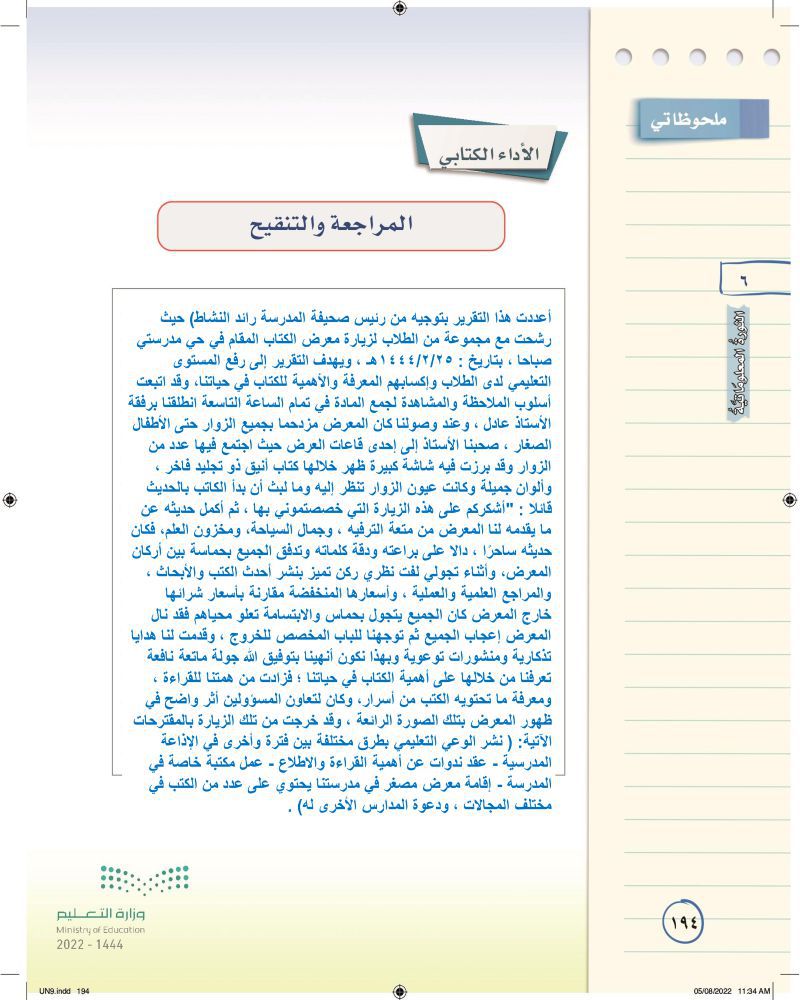 ملحوظاتي
الأداء الكتابي
المراجعة والتنقيح
٦
الثورة المعلوماتية
أعددت هذا التقرير بتوجيه من رئيس صحيفة المدرسة رائد النشاط) حيث
رشحت مع مجموعة من الطلاب لزيارة معرض الكتاب المقام في حي مدرستي
صباحا ، بتاريخ : ١٤٤٤/٢/٢٥هـ ، ويهدف التقرير إلى رفع المستوى
التعليمي لدى الطلاب وإكسابهم المعرفة والأهمية للكتاب في حياتنا، وقد اتبعت
أسلوب الملاحظة والمشاهدة لجمع المادة في تمام الساعة التاسعة انطلقنا برفقة
الأستاذ عادل ، وعند وصولنا كان المعرض مزدحما بجميع الزوار حتى الأطفال
الصغار ، صحبنا الأستاذ إلى إحدى قاعات العرض حيث اجتمع فيها عدد من
الزوار وقد برزت فيه شاشة كبيرة ظهر خلالها كتاب أنيق ذو تجليد فاخر ،
وألوان جميلة وكانت عيون الزوار تنظر إليه وما لبث أن بدأ الكاتب بالحديث
قائلا : "أشكركم على هذه الزيارة التي خصصتموني بها ، ثم أكمل حديثه عن
ما يقدمه لنا المعرض من متعة الترفيه ، وجمال السياحة، ومخزون العلم، فكان
حديثه ساحرًا ، دالا على براعته ودقة كلماته وتدفق الجميع بحماسة بين أركان
المعرض، وأثناء تجولي لفت نظري ركن تميز بنشر أحدث الكتب والأبحاث ،
والمراجع العلمية والعملية ، وأسعارها المنخفضة مقارنة بأسعار شرائها
خارج المعرض كان الجميع يتجول بحماس والابتسامة تعلو محياهم فقد نال
المعرض إعجاب الجميع ثم توجهنا للباب المخصص للخروج ، وقدمت لنا هدايا
تذكارية ومنشورات توعوية وبهذا نكون أنهينا بتوفيق الله جولة ماتعة نافعة
تعرفنا من خلالها على أهمية الكتاب في حياتنا ؛ فزادت من همتنا للقراءة ،
ومعرفة ما تحتويه الكتب من أسرار، وكان لتعاون المسؤولين أثر واضح في
ظهور المعرض بتلك الصورة الرائعة ، وقد خرجت من تلك الزيارة بالمقترحات
الآتية: ( نشر الوعي التعليمي بطرق مختلفة بين فترة وأخرى في الإذاعة
المدرسية - عقد ندوات عن أهمية القراءة والاطلاع - عمل مكتبة خاصة في
المدرسة - إقامة معرض مصغر في مدرستنا يحتوي على عدد من الكتب في
مختلف المجالات ، ودعوة المدارس الأخرى له) .
وزارة التعليم
Ministry of Education
2022 - 1444
١٩٤
UN9.indd 194
05/08/2022 11:34 AM